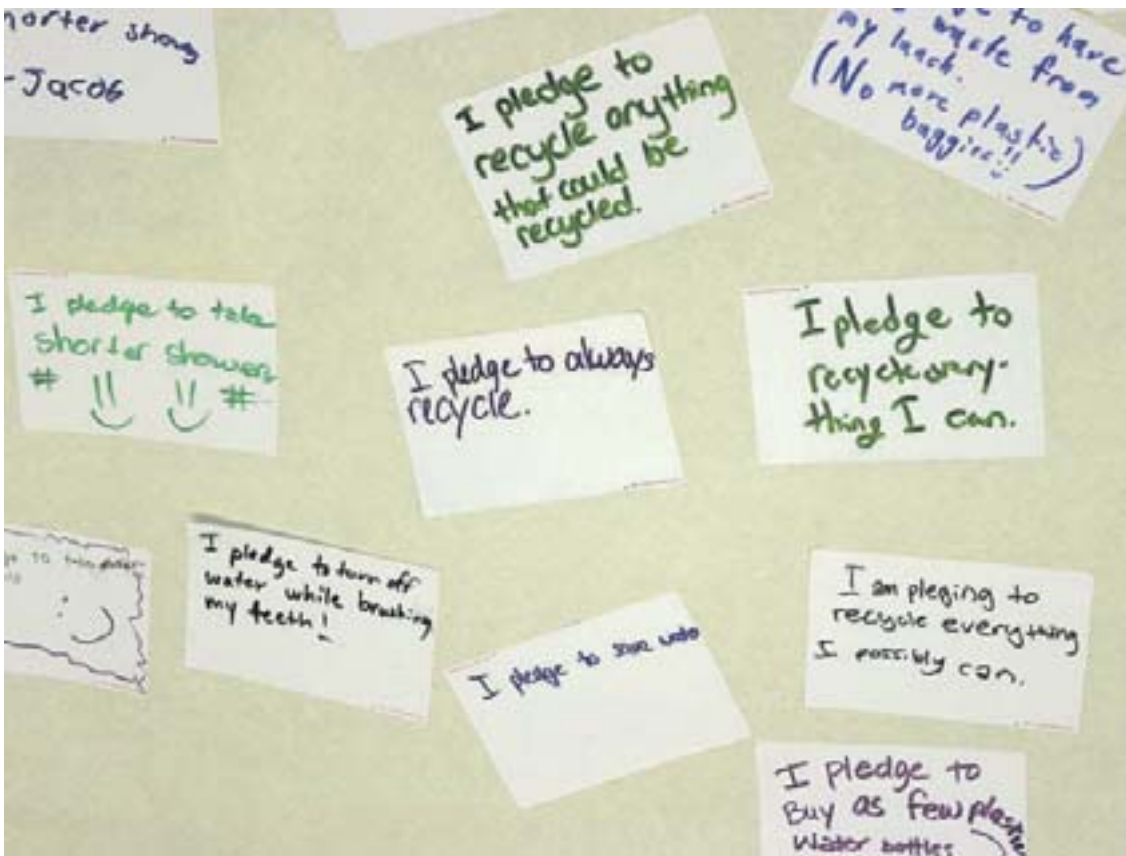 shorter showers
- Jacob
I pledge to
recycle anything
that could be
recycled.
to have
waste from
my lunch.
(No more plastic
baggies!!)
I pledge to take
shorter showers
# #
I pledge to always
recycle.
I pledge to
recycle every-
thing I can.
I pledge to turn off
water while brushing
my teeth!
I pledge to save water
I am pleging to
recycle everything
I possibly can.
I pledge to
Buy as few plastic
Water bottles